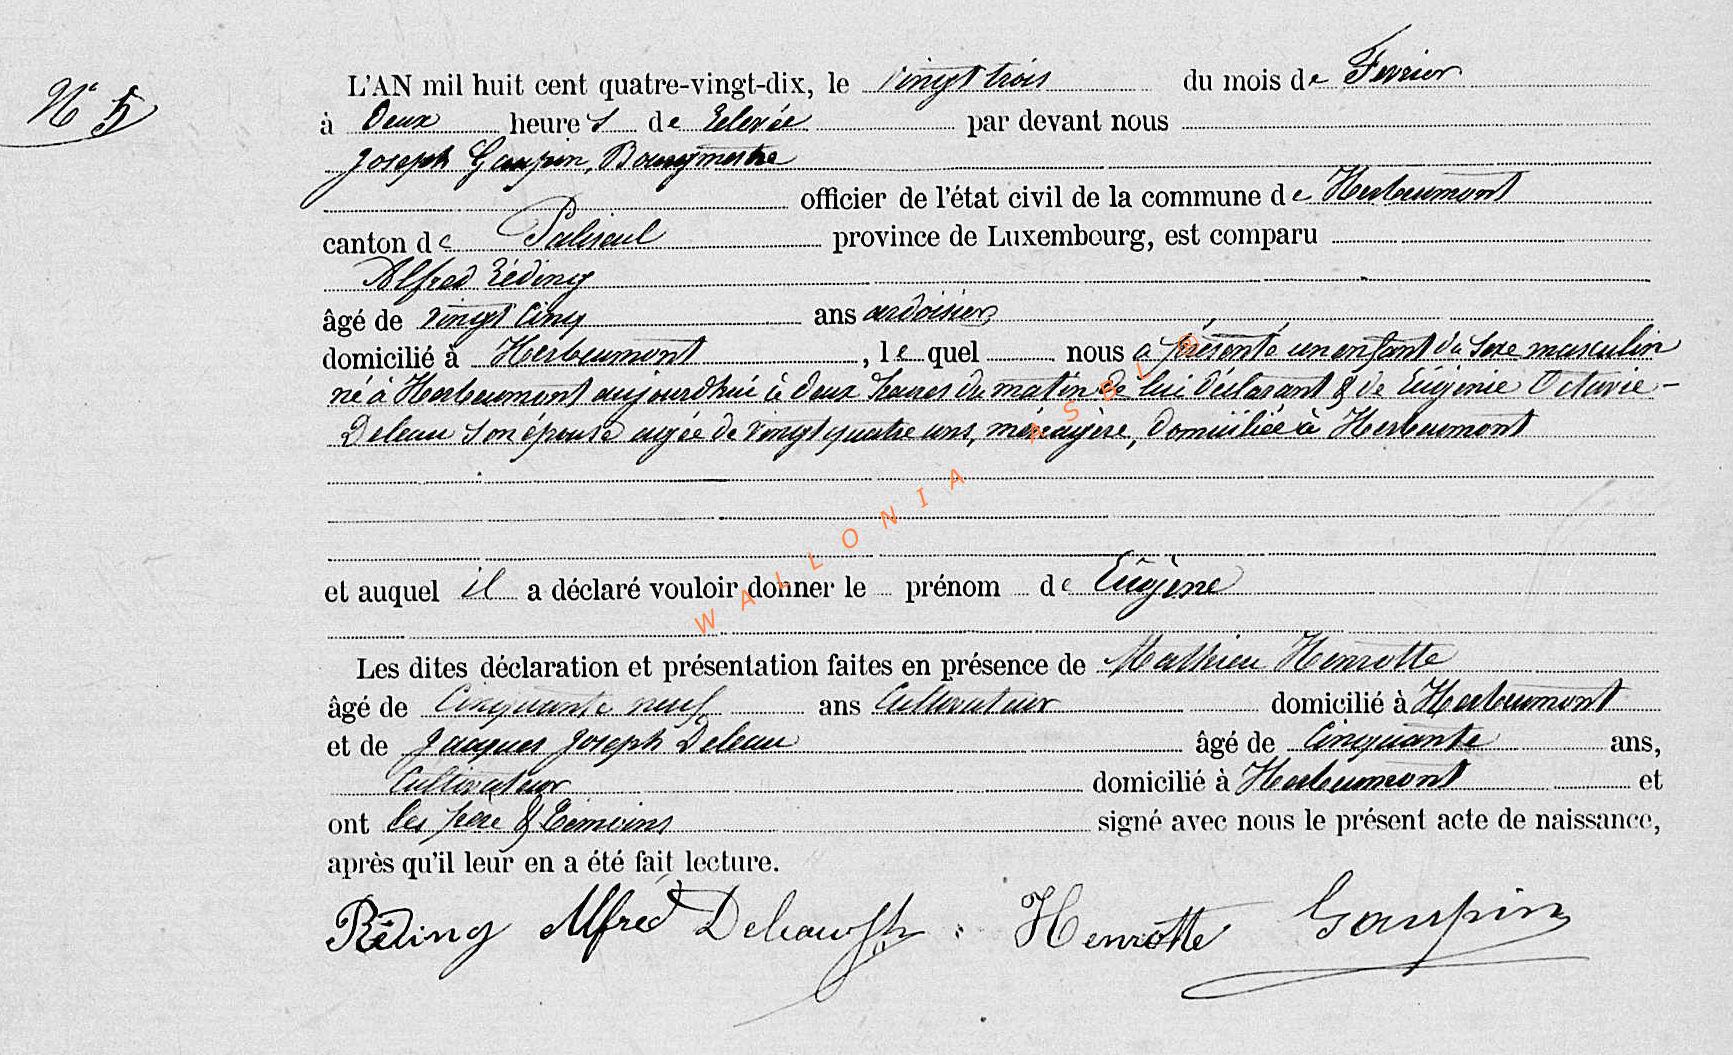 N° 5
L'AN mil huit cent quatre-vingt-dix, le vingt trois du mois de Fevrier
à Deux heures de relevée par devant nous
Joseph Gaupin, Bourgmestre
officier de l'état civil de la commune de Herbeumont
canton de Paliseul province de Luxembourg, est comparu
Alfred Réding
âgé de vingt cinq ans ardoisier
domicilié à Herbeumont, lequel nous a présenté un enfant du sexe masculin
né à Herbeumont aujourdhui à deux heures du matin de lui déclarant & de Eugénie Octavie-
Deleau son épouse agée de vingt quatre ans, ménagère, domiciliée à Herbeumont
et auquel il a déclaré vouloir donner le prénom de Eugène
Les dites déclaration et présentation faites en présence de Mathieu Henrotte
âgé de Cinquante neuf ans Cultivateur domicilié à Herbeumont
et de Jacques Joseph Deleau âgé de Cinquante ans,
Cultivateur domicilié à Herbeumont et
ont les père & témoins signé avec nous le présent acte de naissance,
après qu'il leur en a été fait lecture.
Réding Alfred Deleau JJh. Henrotte Gaupin
WALLONIA ASBL ®